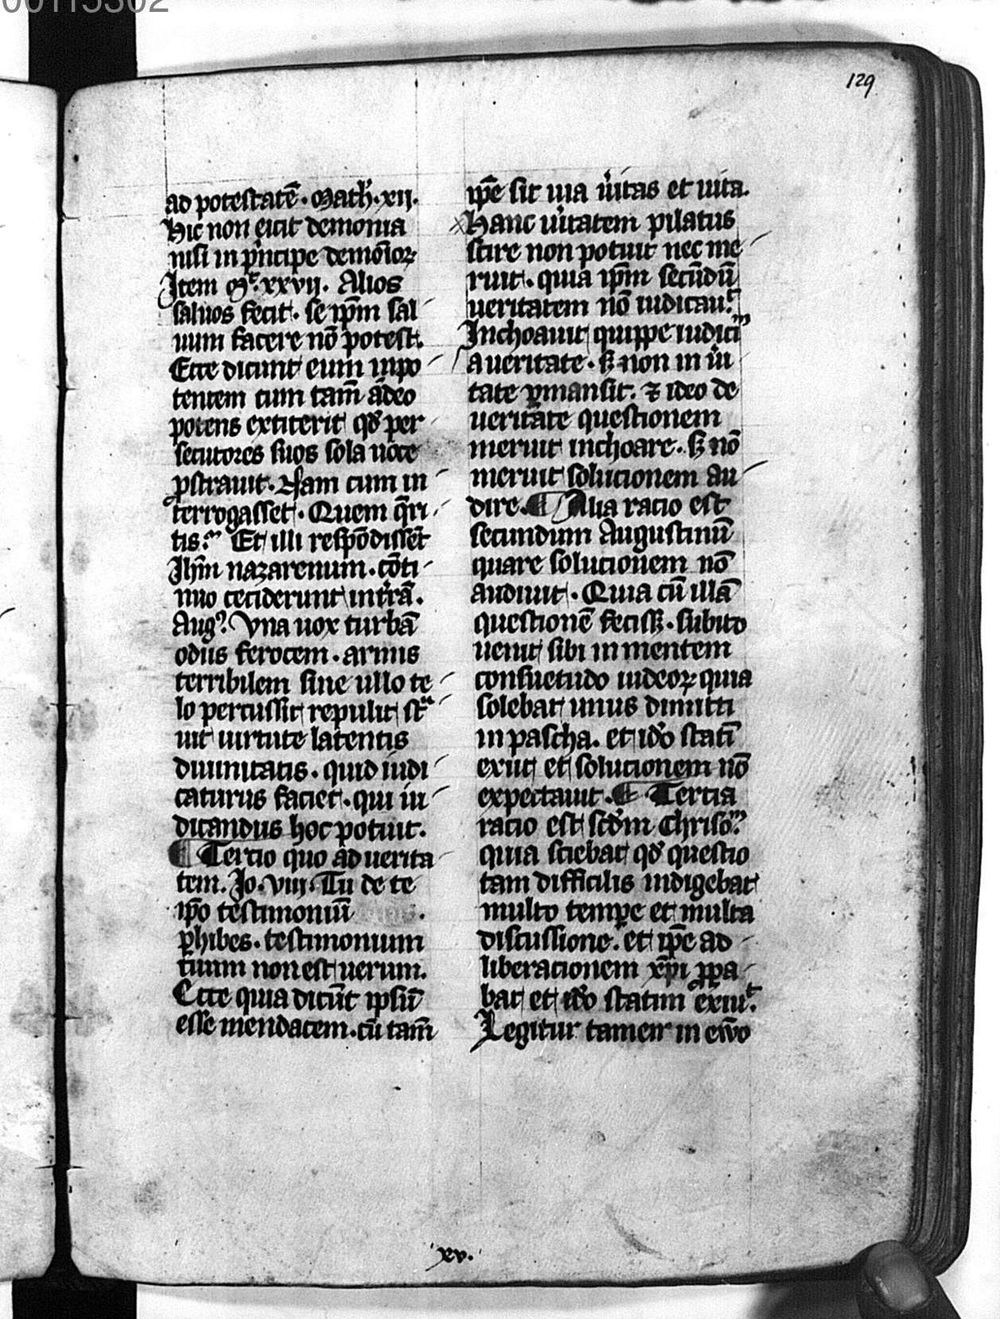 00115302
129
ad potestatē · Math̄ · xij ·
Hic non eicit demonia
nisi in p̉ncipe demōioꝝ
Item Mͭ · xxvij · Alios
saluos fecit · se ip̄m sal
uum facere nō potest ·
Ecce dicunt eum inpo
tentem cum tam̄ adeo
potens extiterit qd̄ per
secutores suos sola uoce
ꝓstrauit · Nam cum in
terrogasset · Quem q̄ri
tis · Et illi respōdisset̄
Ihm̄ nazarenum · cōti
nuo ceciderunt in tr̄a ·
Augꝰ · Vna uox turbā
odiis ferocem · armis
terribilem sine ullo te
lo percussit repulit st̄
uit uirtute latentis
diuinitatis · quid iudi
caturus faciet · qui iu
dicandus hoc potuit ·
¶ Tercio quo ad uerita
tem · Jo · viij · Tu de te
ip̄o testimoniū
ꝑhibes · testimonium
tuum non est uerum ·
Ecce quia dicūt ipsū
esse mendacem · cū tam̄
ip̄e sit uia ūitas et uita ·
Hanc ūitatem pilatus
scire non potuit nec me
ruit · quia ip̄m secūdū
ueritatem nō iudicauͭ ·
Inchoauit quippe iudiciͫ
a ueritate · sꝫ non in ūi
tate ꝑmansit · ⁊ ideo de
ueritate questionem
meruit inchoare · sꝫ nō
meruit solucionem au
dire · ¶ Alia racio est
secundum Augustinū
quare solucionem nō
audiuit · Quia cū illā
questionē fecissꝫ · subito
uenit sibi in mentem
consuetudo iudeoꝝ quia
solebat unus dimitti
in pascha · et iđo statī
exiit et solucionem nō
expectauit · ¶ Tercia
racio est scđm Chrisoͫ ·
quia sciebat qđ questio
tam difficilis indigebat
multo tempe̱ et multa
discussione · et ip̄e ad
liberacionem xp̄i ꝓpa
bat et iđo statim exiuͭ ·
Legitur tamen in ew̄o
xv ·